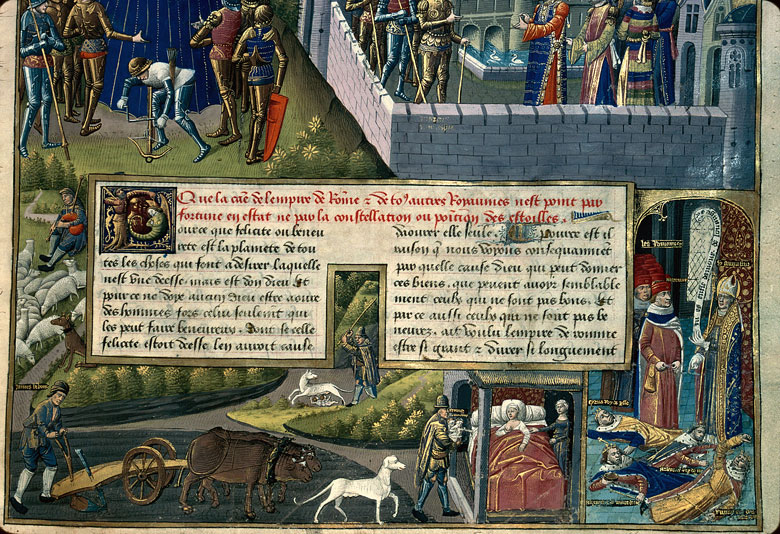 Que la cause de lempire de Rome & de tous autres Royaumes nest point par
fortune en estat ne par la constellation ou position des estoilles.
Pource que felicite ou beneu
rete est la plainete de tou
tes les choses qui font a desirer laquelle
nest une deesse mais est don dieu Et
pour ce ne doye aucun dieu estre aoure
des hommes fors celui seulement qui
les peut faire beneureux. Dont se celle
felicite estoit deesse len auroit cause
daourer elle seule. Pource est il
raison que nous voyons consequanment
par quelle cause dieu qui peut donner
ces biens, que peuent avoir semblable
ment ceulx qui ne sont pas bons, Et
par ce aussi ceulx qui ne sont pas be
neurez, ait voulu lempire de romme
estre si grant & durer si longuement